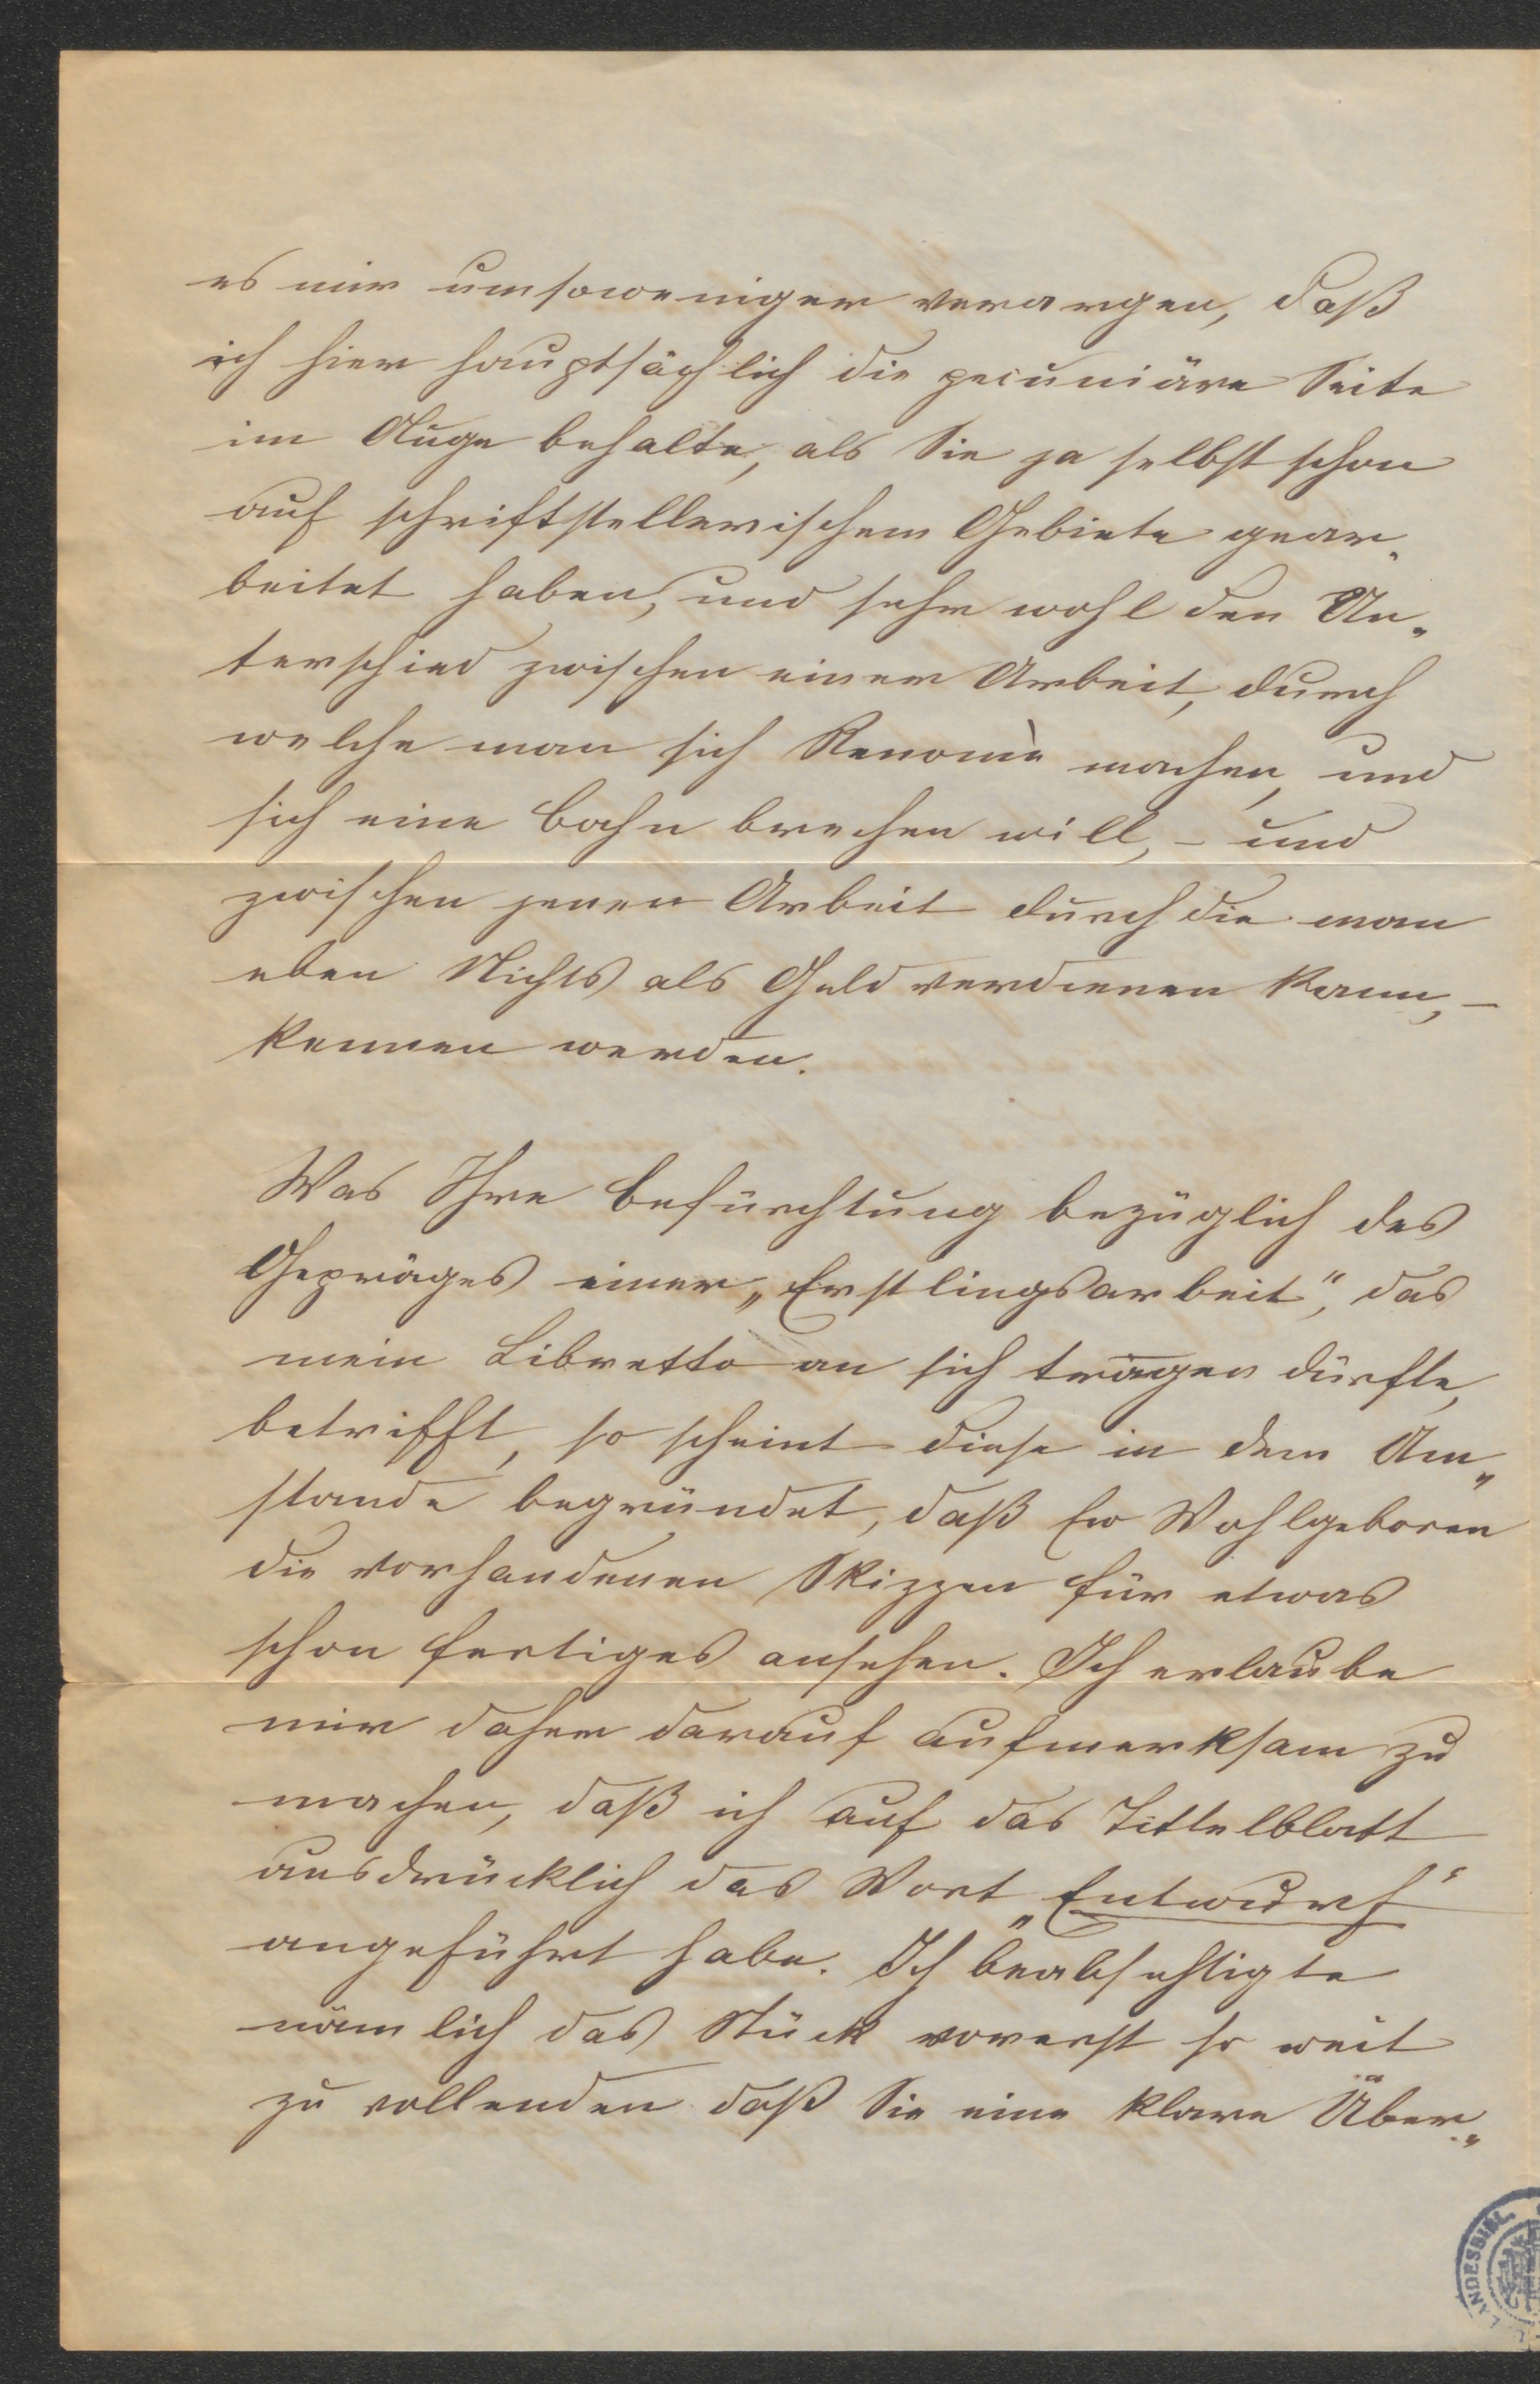 es mir umsoweniger verargen, daß
ich hier hauptsächlich die pecuniäre Seite
im Auge behalte, als Sie ja selbst schon
auf schriftstellerischem Gebiete gear„
beitet haben, und sehr wohl den Un„
terschied zwischen einer Arbeit, durch
welche man sich Renomè machen, und
sich eine Bahn brechen will, – und
zwischen jener Arbeit durch die man
eben Nichts als Geld verdienen kann, –
kennen werden.
Was Ihre Befürchtung bezüglich des
Gepräges einer „Erstlingsarbeit“, das
mein Libretto an sich tragen dürfte,
betrifft, so scheint diese in dem Um„
stande begründet, daß Ew Wohlgeboren
die vorhandenen Skizzen für etwas
schon fertiges ansehen. Ich erlaube
mir daher darauf aufmerksam zu
machen, daß ich auf das Tittelblatt
ausdrücklich das Wort „Entwurf“
angeführt habe. Ich beabsichtigte
nämlich das Stück vorerst so weit
zu vollenden daß Sie eine klare Über„
LANDESBIBL.